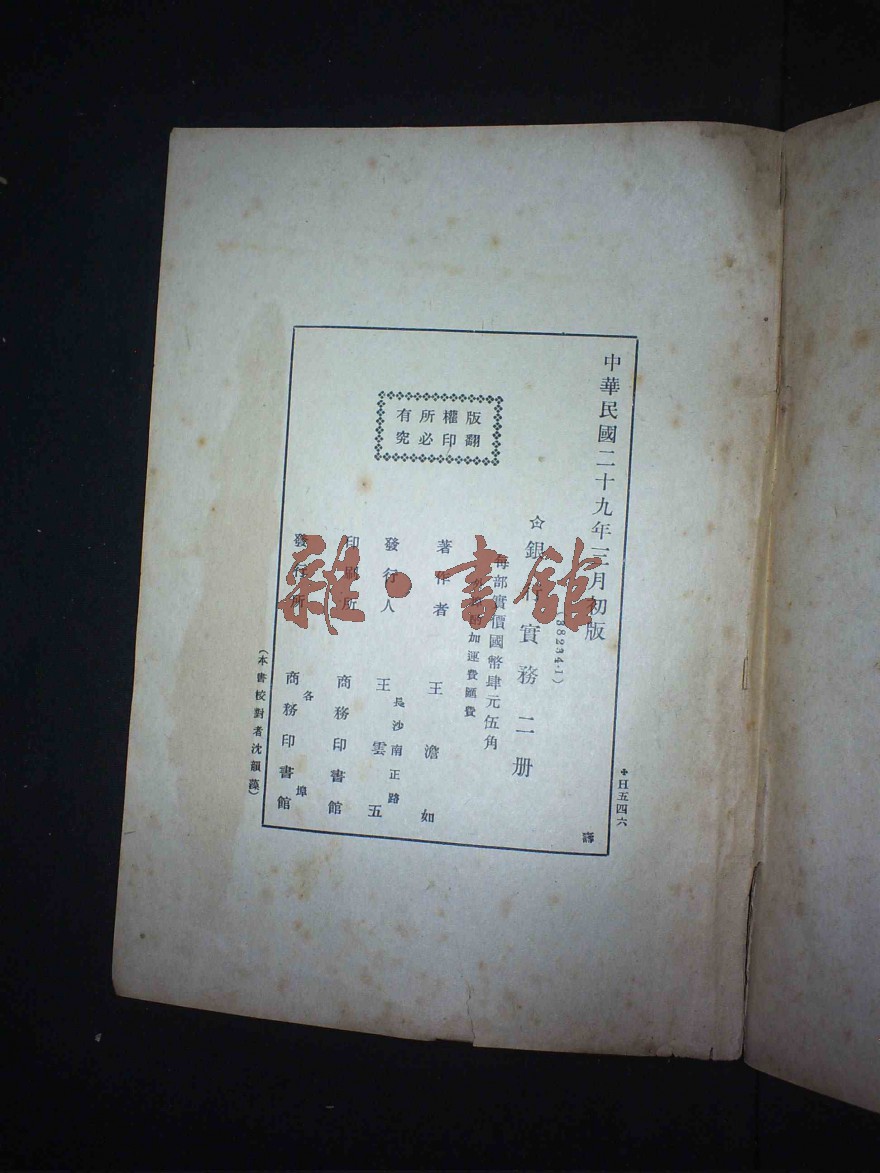 中華民國二十九年三月初版
(38234·1)
☆銀行實務二册
每部實價國幣肆元伍角
外埠酌加運費匯費
著作者 王澹如
長沙南正路
發行人 王雲五
印刷所 商務印書館
各埠
發行所 商務印書館
版權所有
翻印必究
(本書校對者沈韻藻)
日五四六
雜·書館